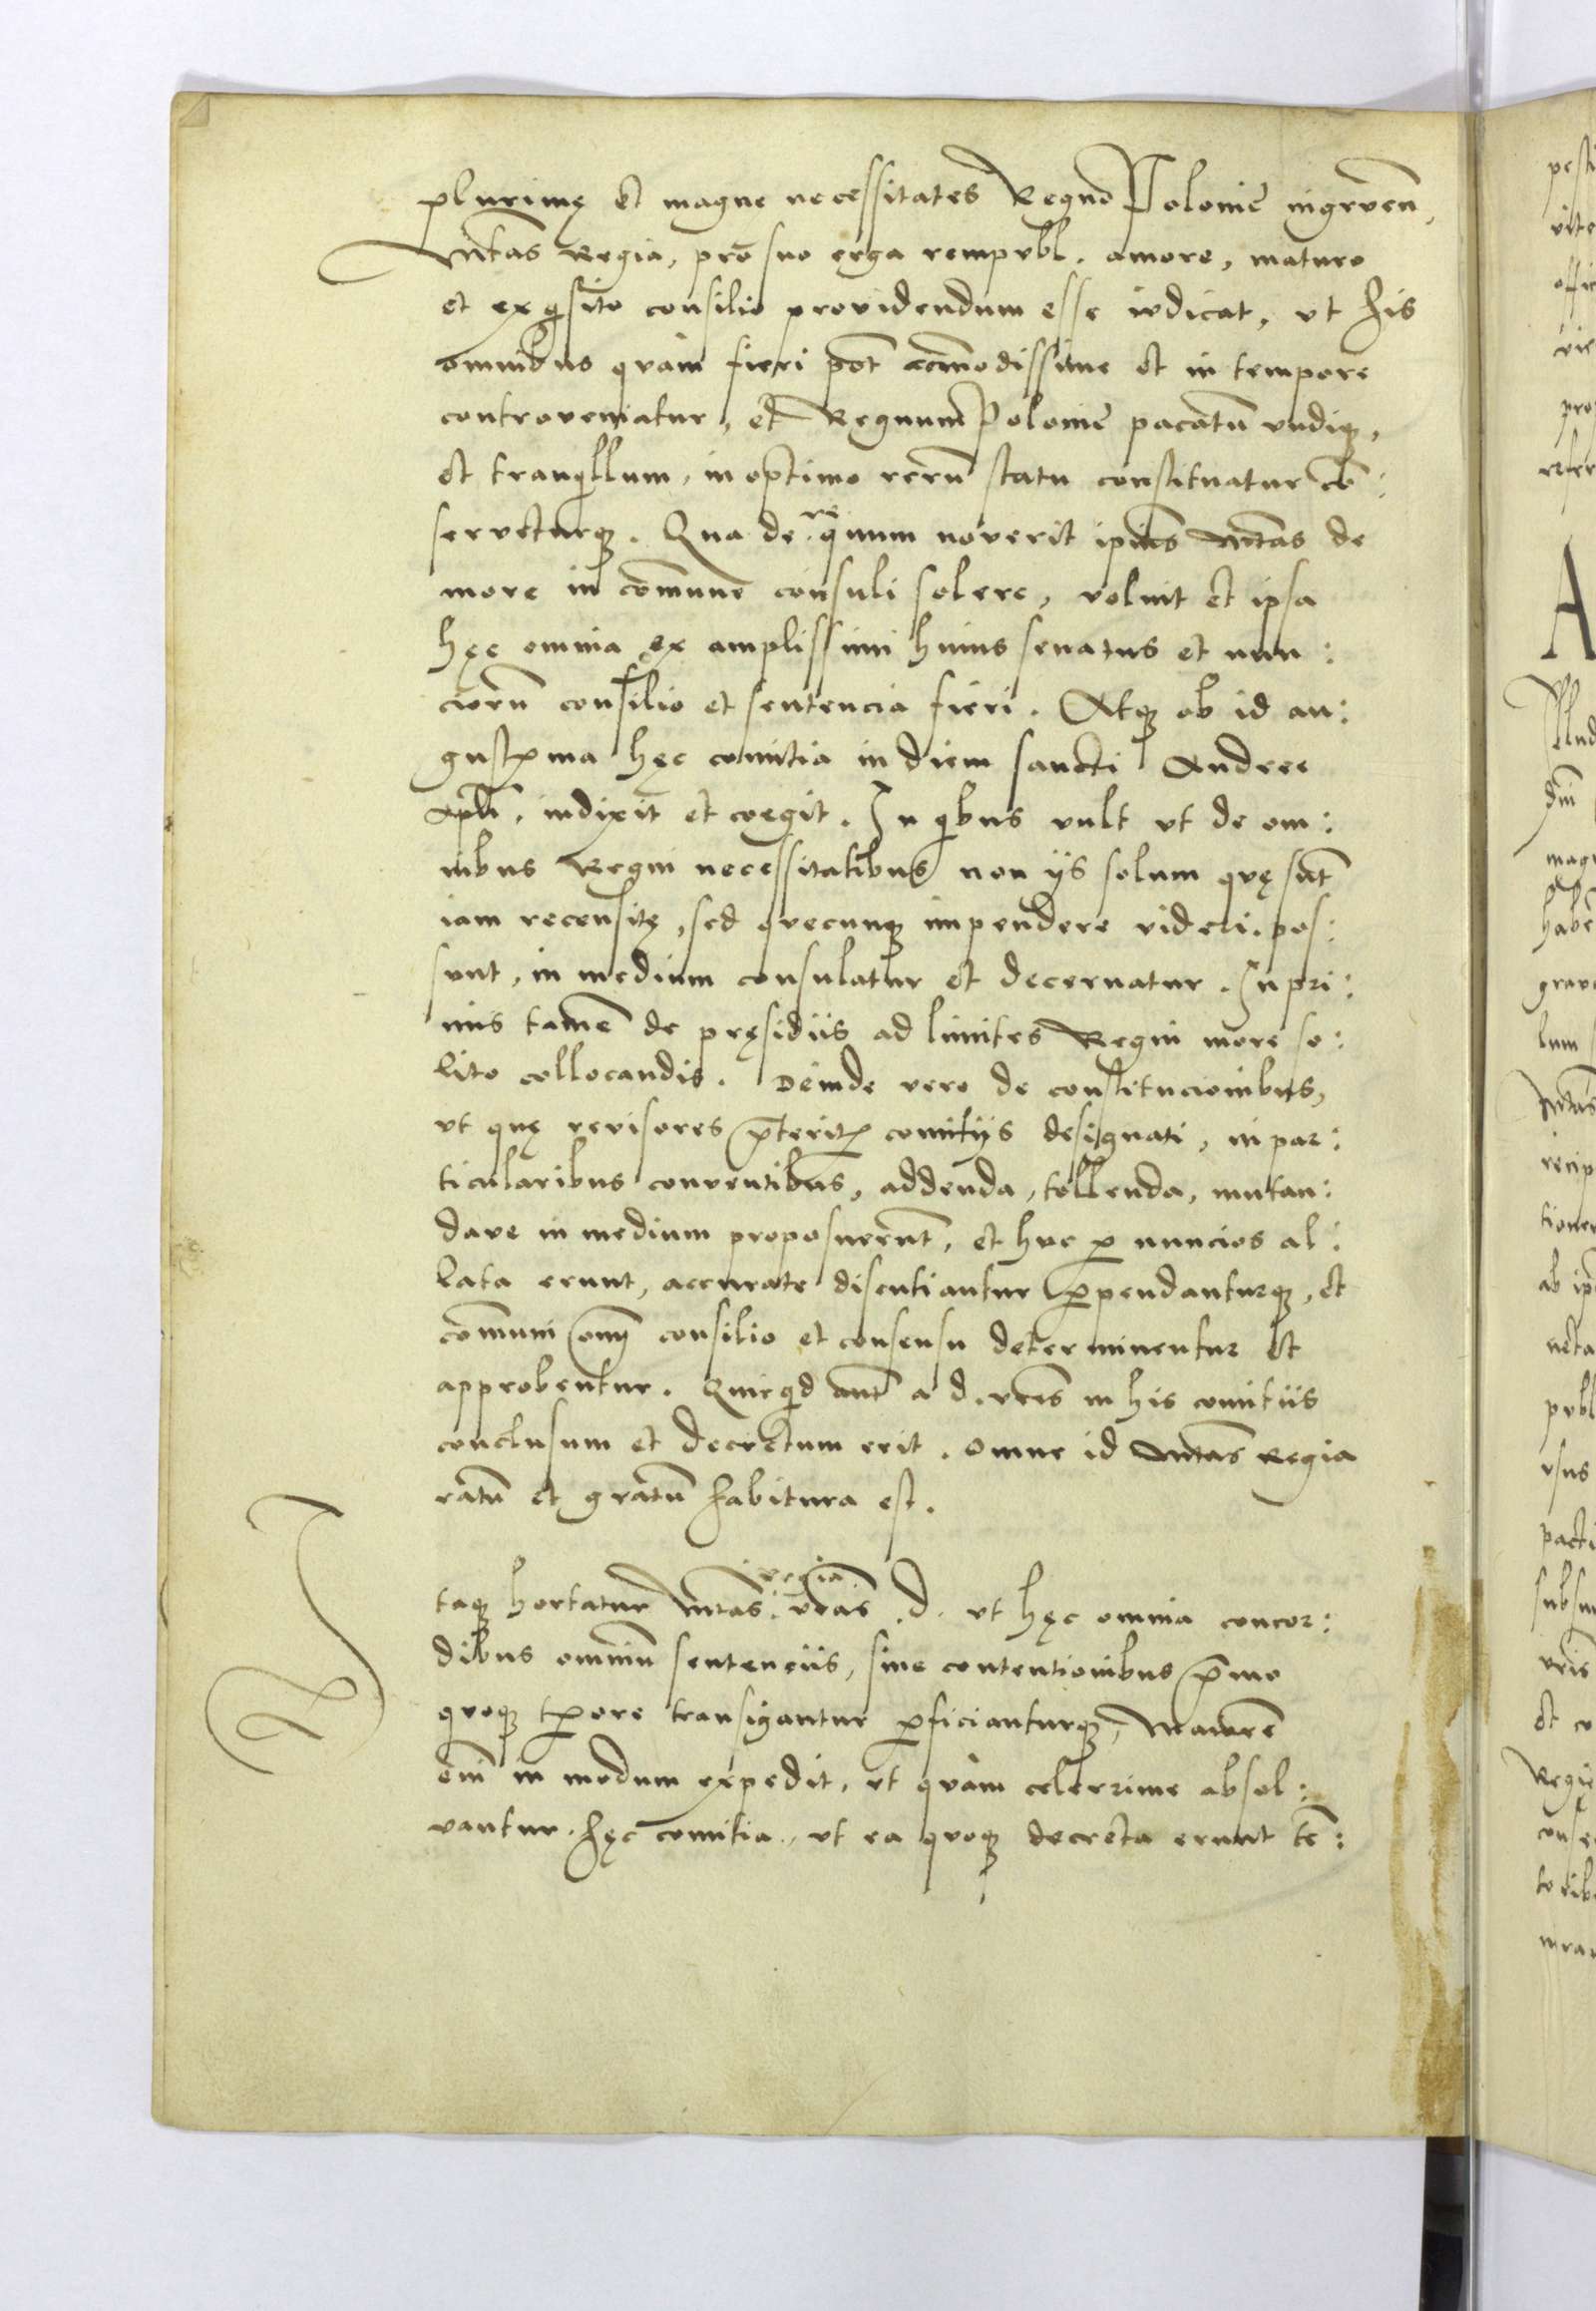 plurimę et magne necessitates Regno Polonię ingruen̄,
Mtas Regia, pro suo erga rempubl. amore, maturo
et exqisito consilio providendum esse iudicat, ut his
omnibus quam fieri pot̄ accōmodissime et in tempore
controveniatur, et Regnum Poloniē pacatū undiq,
et tranqillum, in optimo rerū statu constituatur cō:
serveturq. Qua de re qnum noverit ipius Mtas de
more in comune consuli solere, voluit et ipsa
hęc omnia ex amplissimi huius senatus et nun:
ciorū consilio et sentencia fieri. Atq ob id au:
gustma hęc comitia in diem sancti Andree
Apli, indixit et coegit. In qibus vult ut de om:
nibus Regni necessitatibus non ijs solum quę sūt
iam recensitę, sed quecunq impendere videri pos:
sunt, in medium consulatur et decernatur. In pri:
mis tamē de pręsidiis ad limites Regni more so:
lito collocandis. Deinde vero de constitucionibus,
ut quę revisores p̄terit comitijs designati, in par:
ticularibus conventibus, addenda, tollenda, mutan:
dave in medium proposuerūt, et huc p nuncios al:
lata erunt, accurate discutiantur ppendanturq, et
comuni om̄ consilio et consensu determinentur et
approbentur. Quicqid aut̄ a d. vris in his comitiis
conclusum et decretum erit. omne id Mtas Regia
ratū et gratū habitura est.
Itaq hortatur Mtas regia vras .d. ut hęc omnia concor:
dibus omniū sentenciis, sine contentionibus p̄mo
quoq tpore transigantur pficianturq, Maiorē
eni in modum expedit, ut quam celerrime absol:
vantur hęc comitia, ut ea quoq decreta erunt tē: